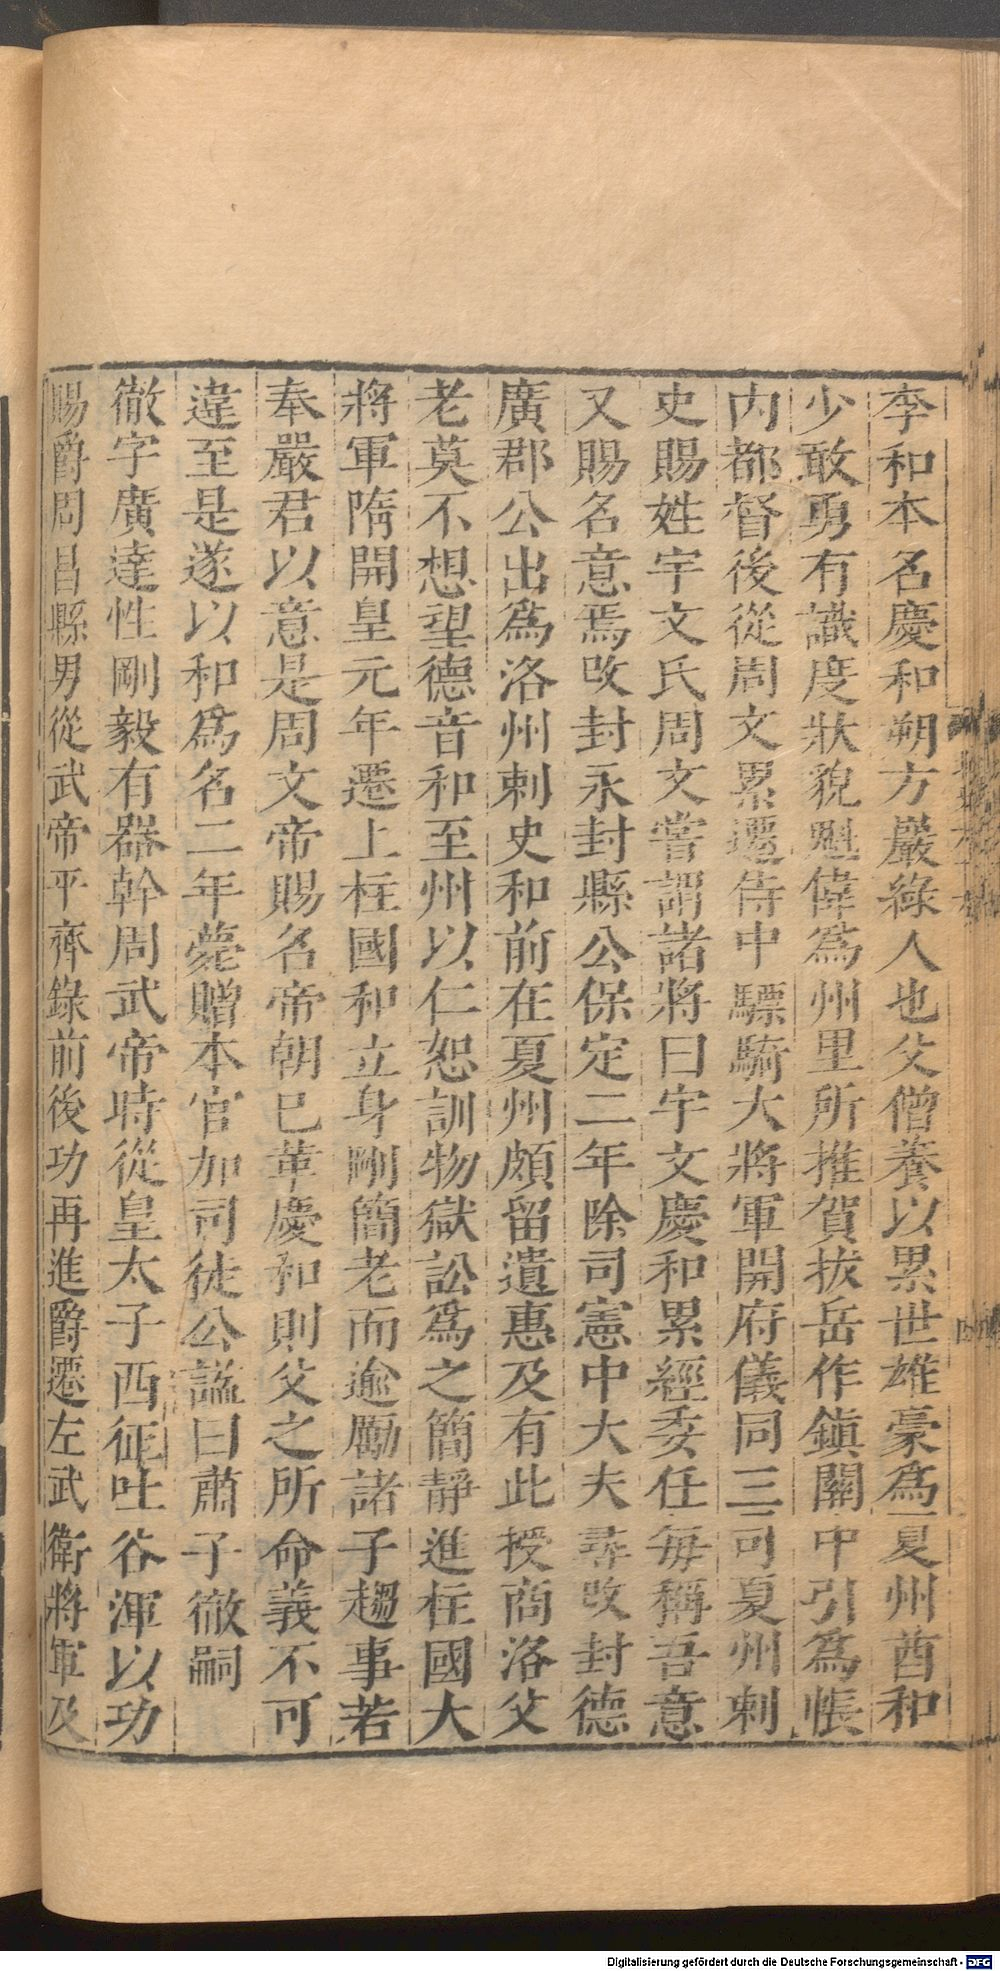 李和本名慶和朔方巖綠人也父僧養以累世雄豪爲夏州酋和
少敢勇有識度狀貌魁偉爲州里所推賀拔岳作鎮關中引爲帳
内都督後從周文累遷侍中驃騎大將軍開府儀同三司夏州刺
史賜姓宇文氏周文嘗謂諸將曰宇文慶和累經委任每稱吾意
又賜名意焉改封永封縣公保定二年除司憲中大夫尋改封德
廣郡公出爲洛州刺史和前在夏州頗留遺惠及有此授商洛父
老莫不想望德音和至州以仁恕訓物獄訟爲之簡靜進柱國大
將軍隋開皇元年遷上柱國和立身剛簡老而逾勵諸子趨事若
奉嚴君以意是周文帝賜名帝朝已革慶和則父之所命義不可
違至是遂以和爲名二年薨贈本官加司徒公謚曰肅子徹嗣
徹字廣達性剛毅有器幹周武帝時從皇太子西征吐谷渾以功
賜爵周昌縣男從武帝平齊錄前後功再進爵遷左武衛將軍及
Digitalisierung gefördert durch die Deutsche Forschungsgemeinschaft - DFG